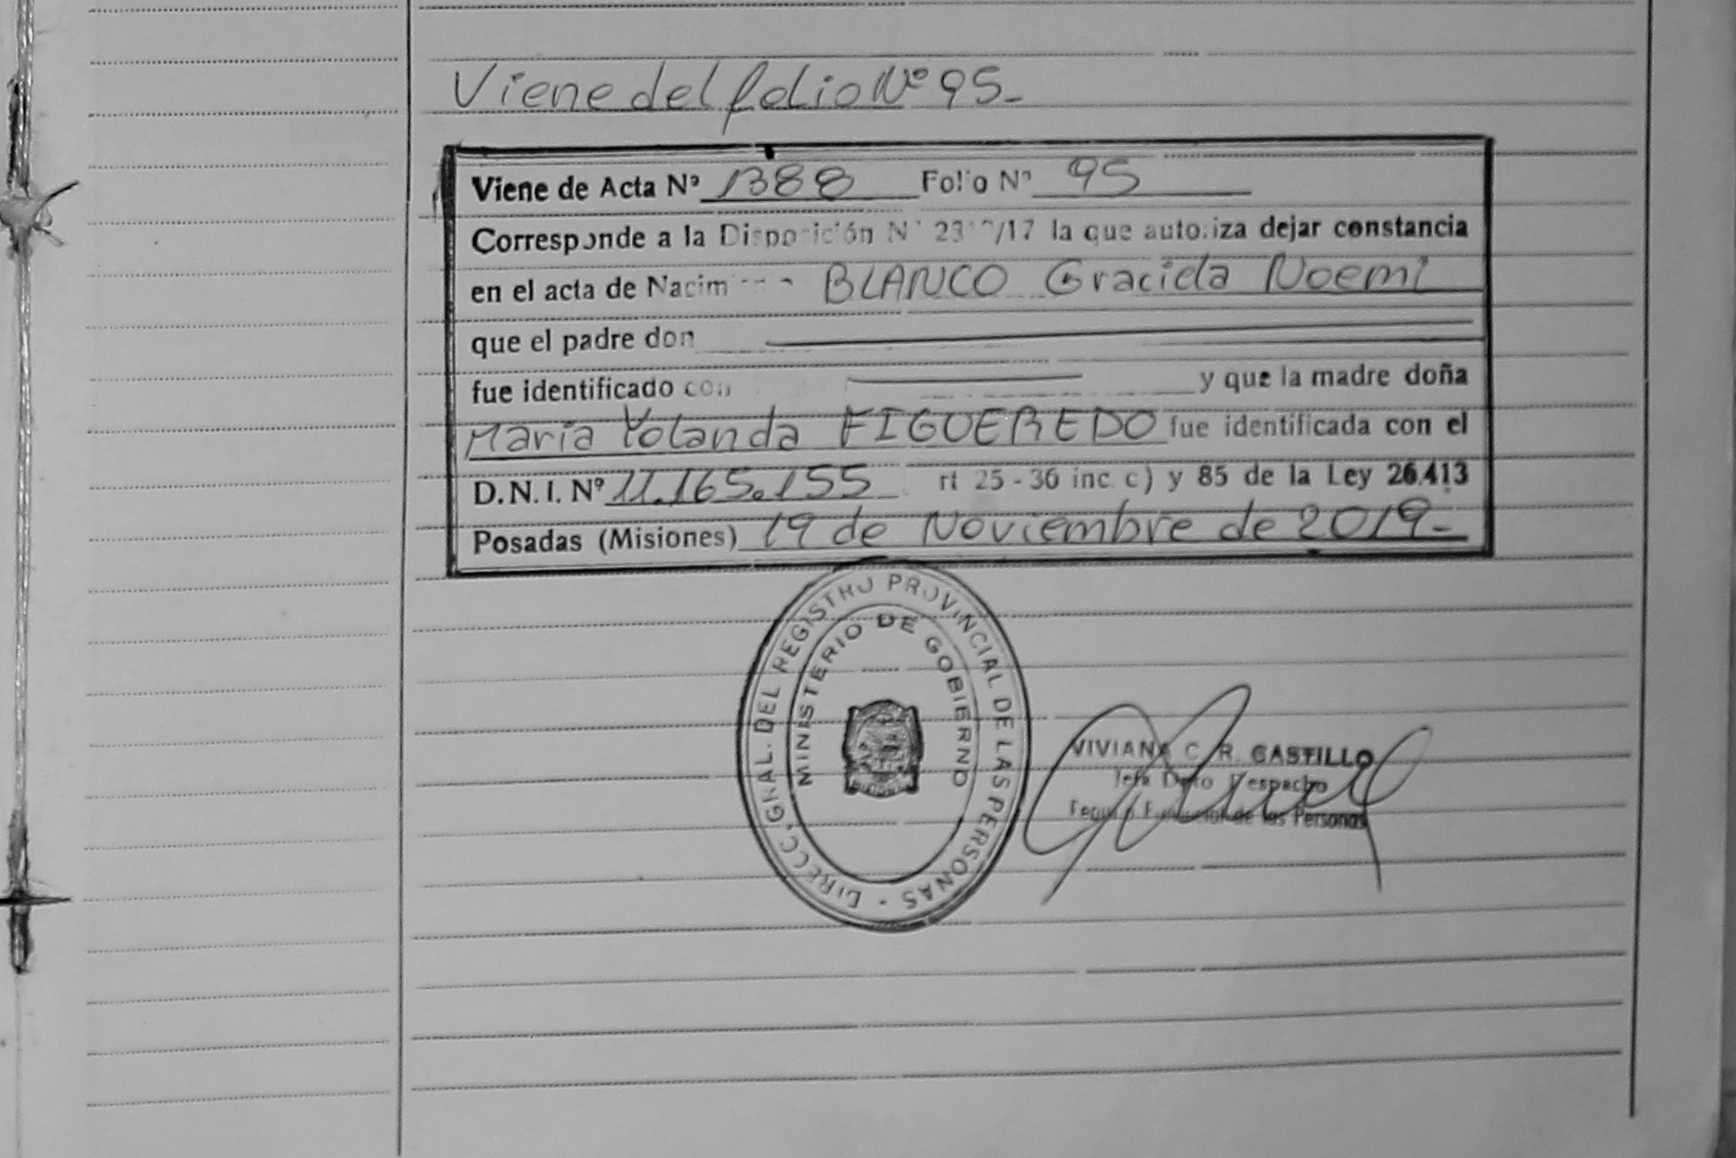 Viene del folio Nº 95-
Viene de Acta Nº 1388 Folio Nº 95
Corresponde a la Disposición Nº /17 la que autoriza dejar constancia
en el acta de BLANCO Graciela Noemi
que el padre don
fue identificado con y que la madre doña
María Yolanda FIGUEREDO fue identificada con el
D.N.I. Nº 11.165.155 rt 25 - 36 inc. c) y 85 de la Ley 26.413
Posadas (Misiones) 19 de Noviembre de 2019-
DIRECC. GRAL. DEL REGISTRO PROVINCIAL DE LAS PERSONAS -
MINISTERIO DE GOBIERNO
VIVIANA C. R. CASTILLO
Jefa Dpto Despacho
de las Personas